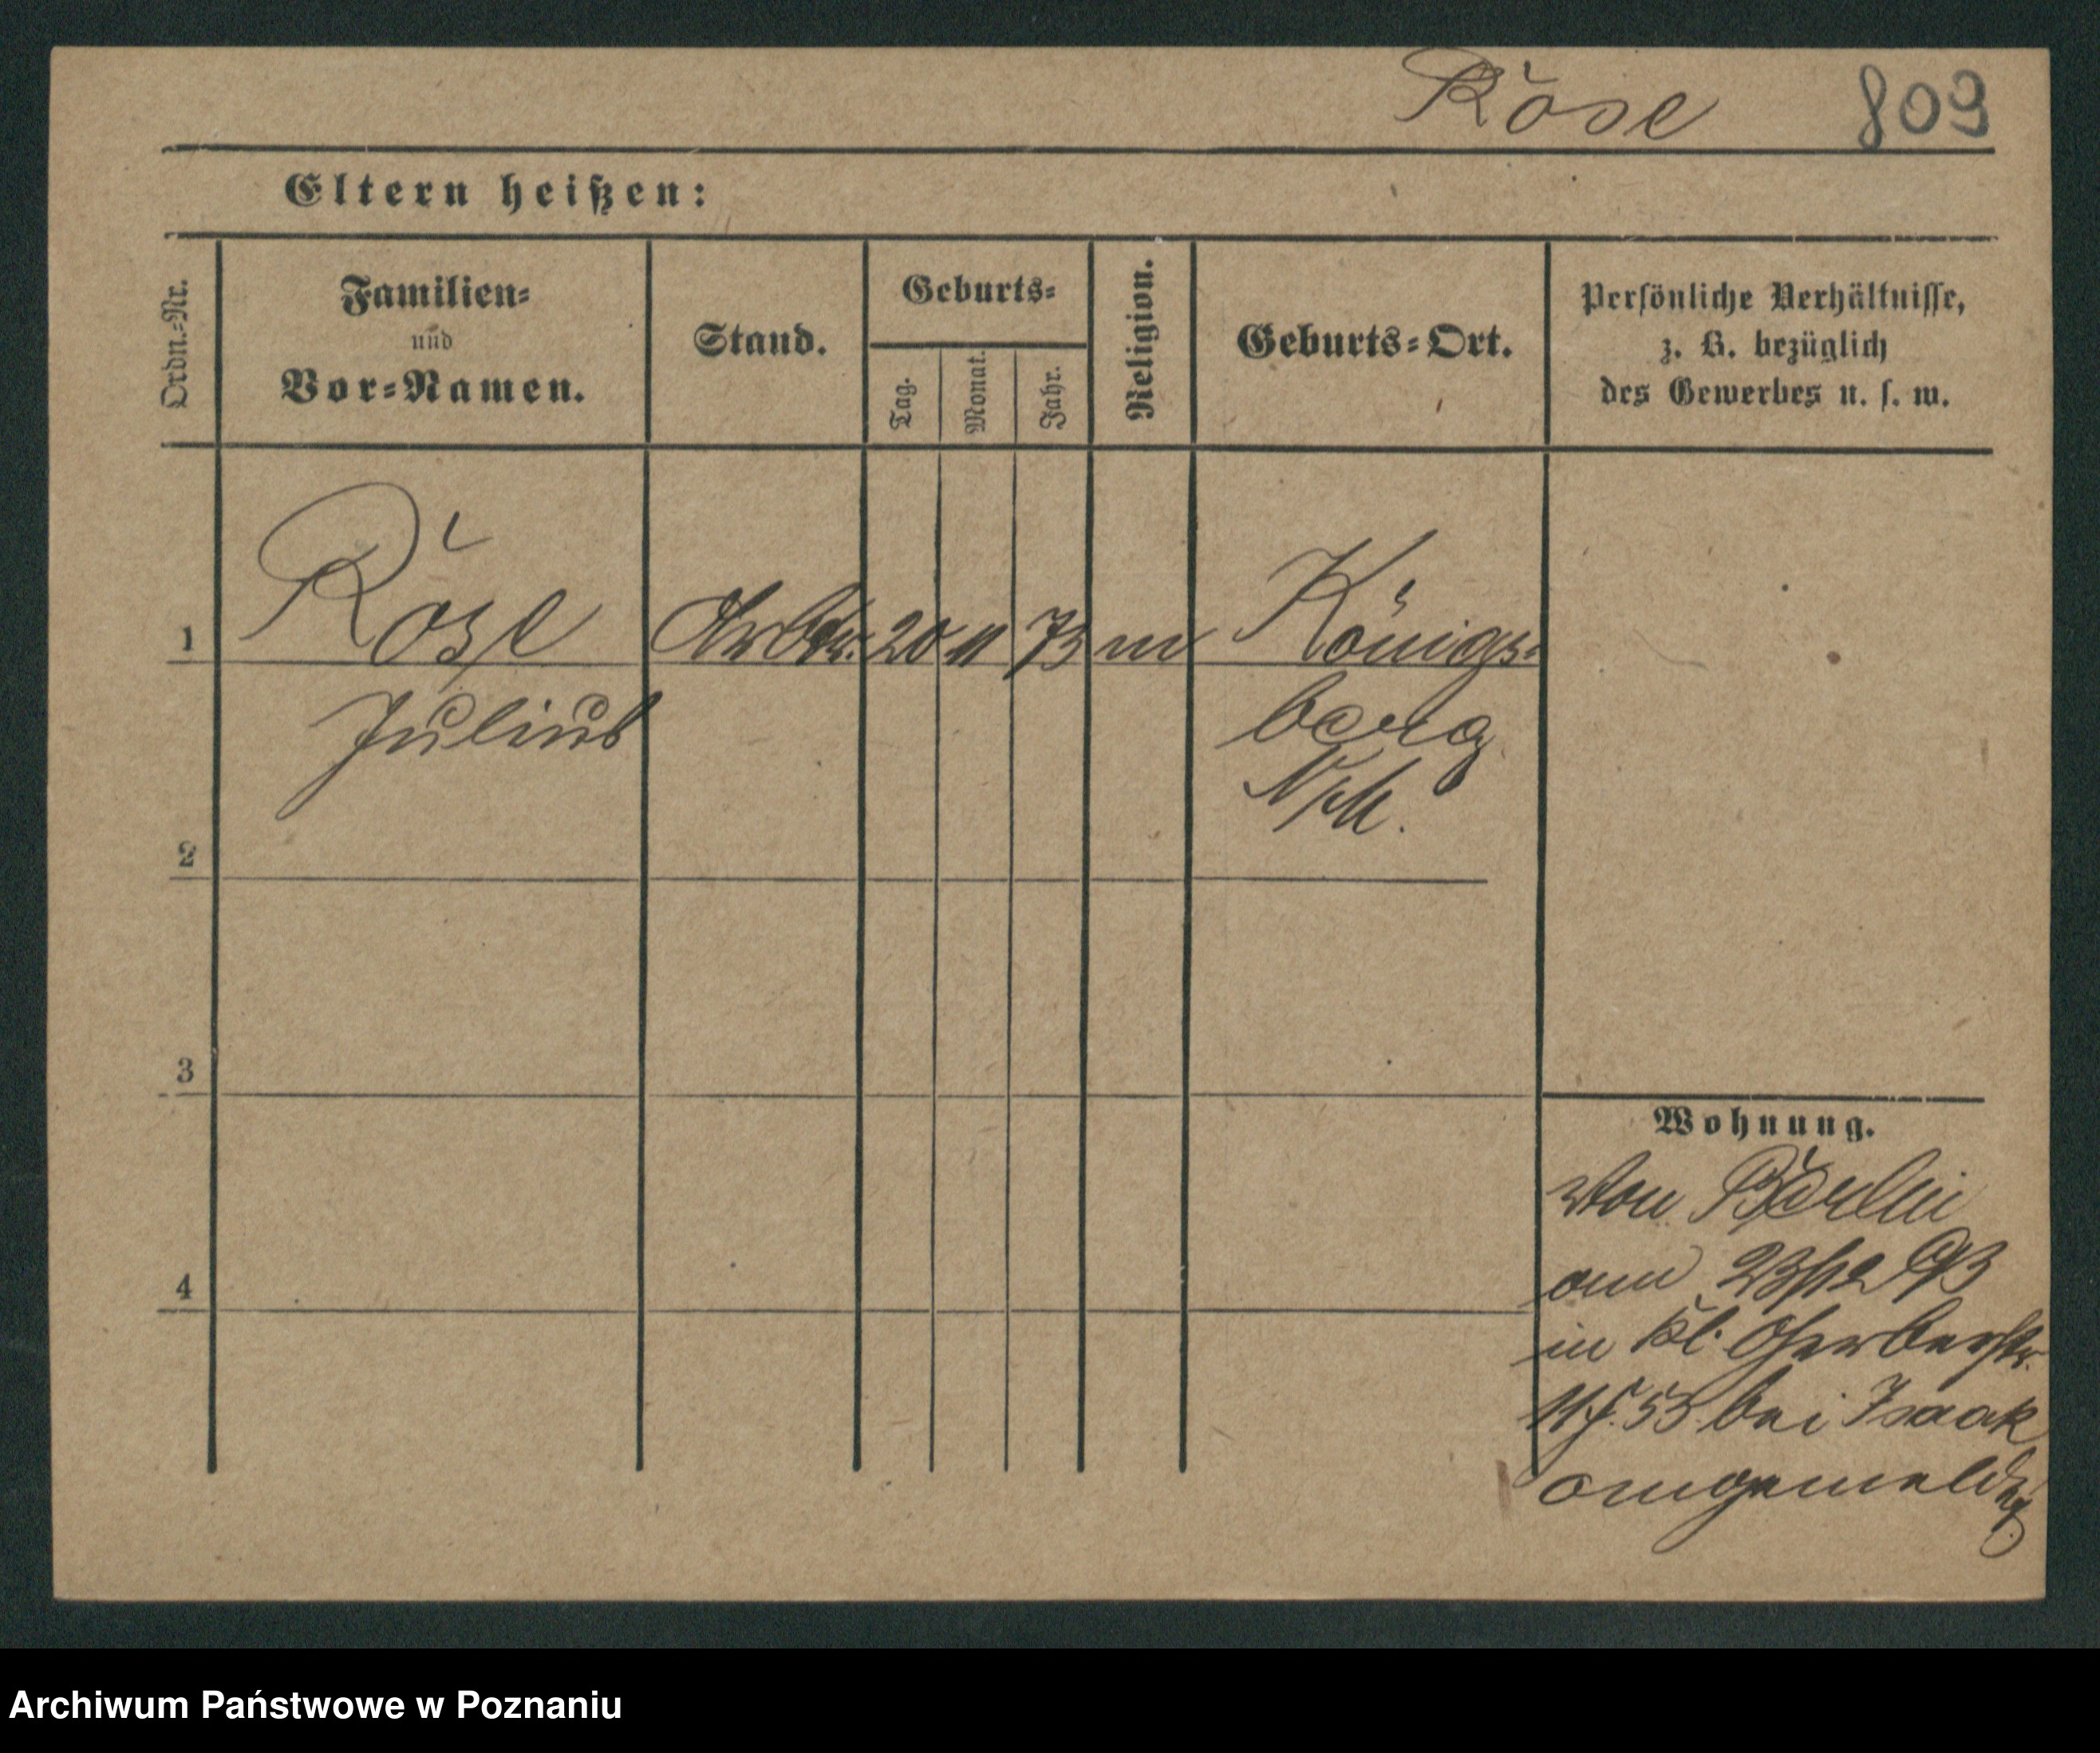 Röse 809
Eltern heißen:
Ordn.=Nr.
Familien=
und
Vor=Namen.
Stand.
Geburts=
Tag.
Monat.
Jahr.
Religion.
Geburts=Ort.
Persönliche Verhältnisse,
z. B. bezüglich
des Gewerbes u. s. w.
1
Röse
Julius
Arbtr.
20
11
73
m
Königs=
berg
N/M.
2
3
4
Wohnung.
Von Berlin
am 23/12 93
in kl. Gerberstr.
11 f. 53 bei Isaak
angemeldet
Archiwum Państwowe w Poznaniu